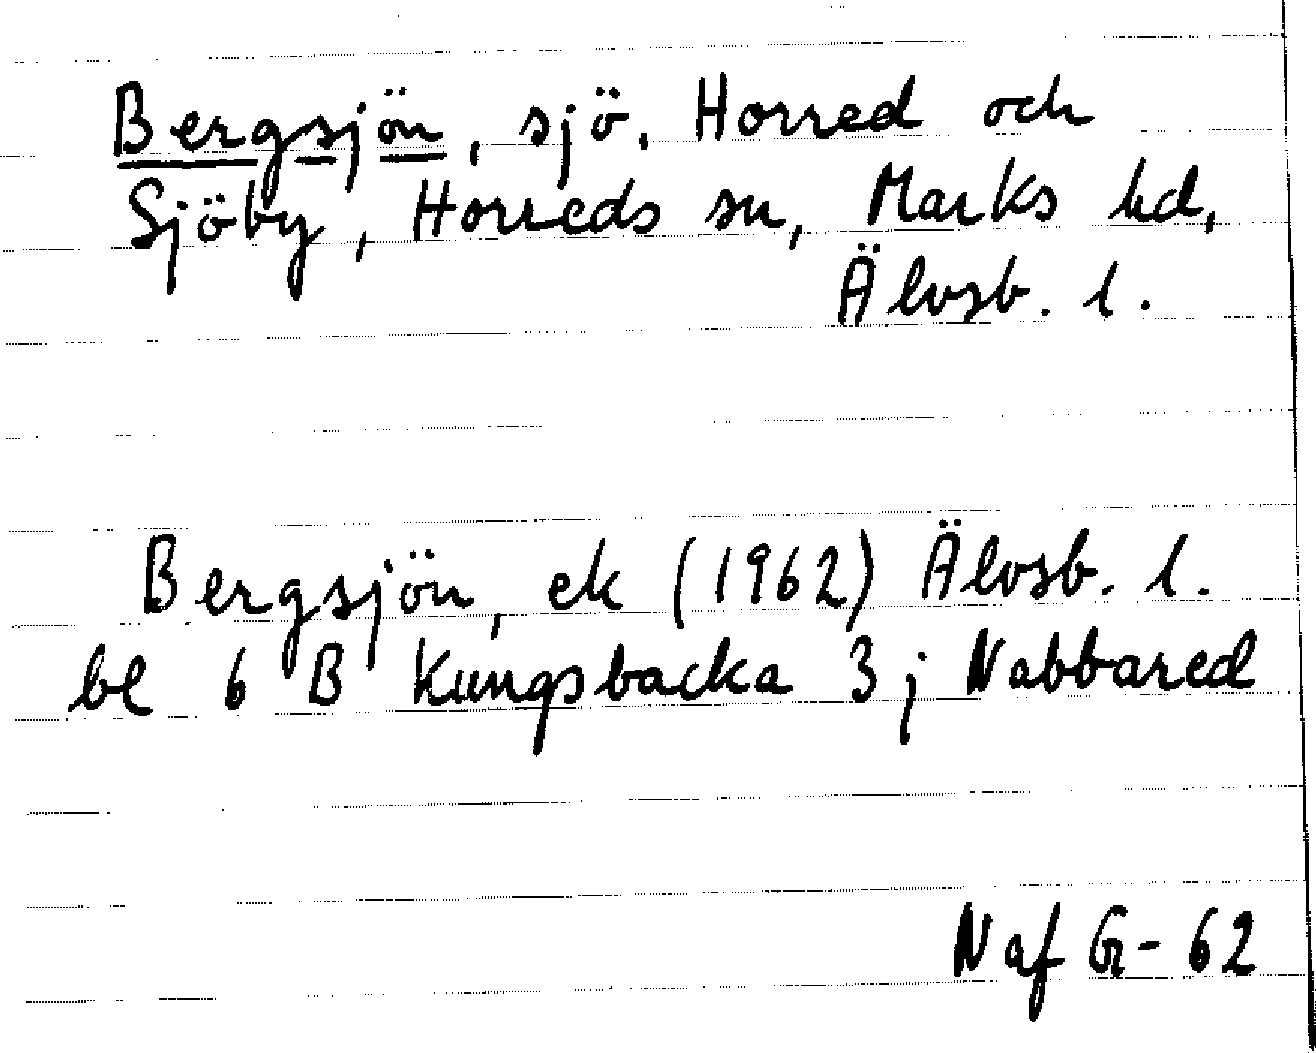 Bergsjön, sjö, Horred och
Sjöby, Horreds sn, Marks hd,
Älvsb. l.
Bergsjön, ek (1962) Älvsb. l.
bl 6 B Kungsbacka 3j Nabbared
Naf Gr-62